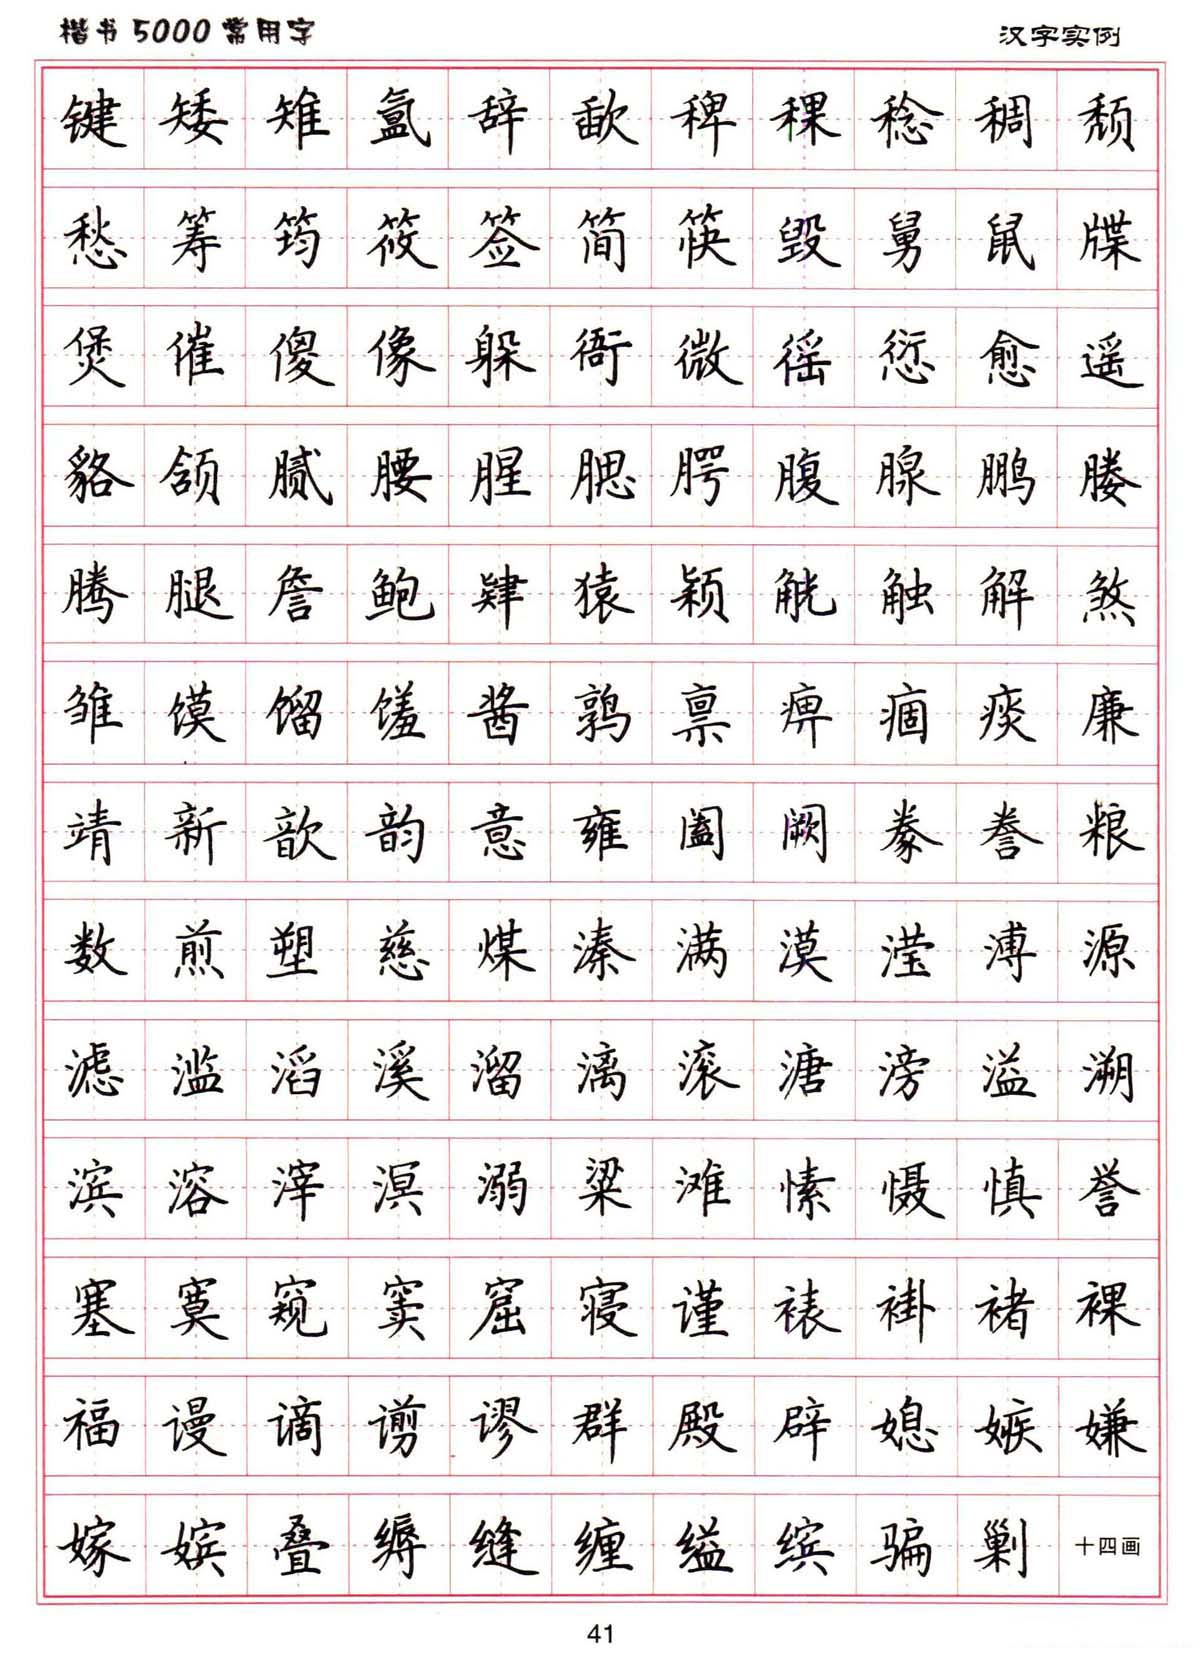 楷书5000常用字 汉字实例
键矮雉氲辞歃稗稞稔稠颓
愁筹筠筱签简筷毁舅鼠牒
煲催傻像躲衙微徭愆愈遥
貉颔腻腰腥腮腭腹腺鹏塍
腾腿詹鲍肄猿颖觥触解煞
雏馍馏馐酱鹑禀痹痼痰廉
靖新歆韵意雍阖阙豢誊粮
数煎塑慈煤溱满漠滢溥源
滤滥滔溪溜漓滚溏滂溢溯
滨溶滓溟溺粱滩愫慑慎誉
塞寞窥窦窟寝谨裱褂褚裸
福谩谪谫谬群殿辟媳嫉嫌
嫁嫔叠缛缝缠缢缤骗剿十四画
41